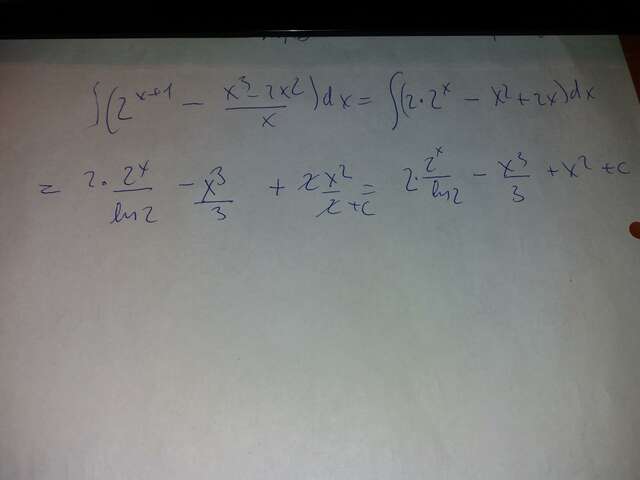 ∫(2^{x+1} - \frac{x^3 - 2x^2}{x})dx = ∫(2·2^x - x^2 + 2x)dx
= 2·\frac{2^x}{ln2} - \frac{x^3}{3} + 2\frac{x^2}{2} + c = 2·\frac{2^x}{ln2} - \frac{x^3}{3} + x^2 + c